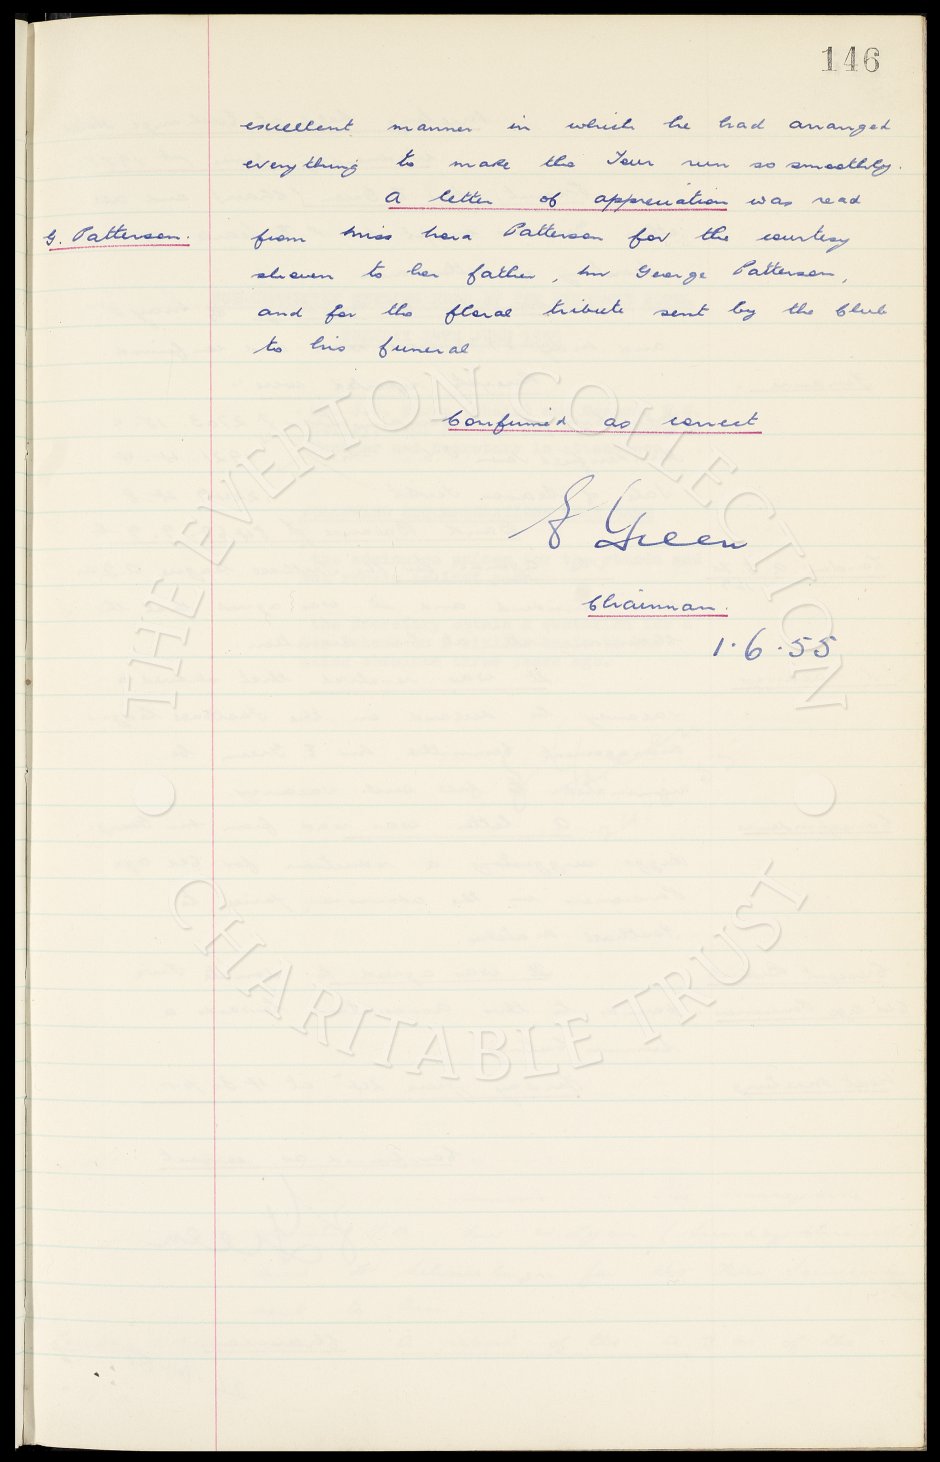 146
excellent manner in which he had arranged
everything to make the Tour run so smoothly.
A letter of appreciation was read
G. Patterson.
from Miss Patterson for the courtesy
shown to her father, Mr George Patterson,
and for the floral tribute sent by the Club
to his funeral
Confirmed as correct
E Green
Chairman.
1.6.55
THE EVERTON COLLECTION
CHARITABLE TRUST